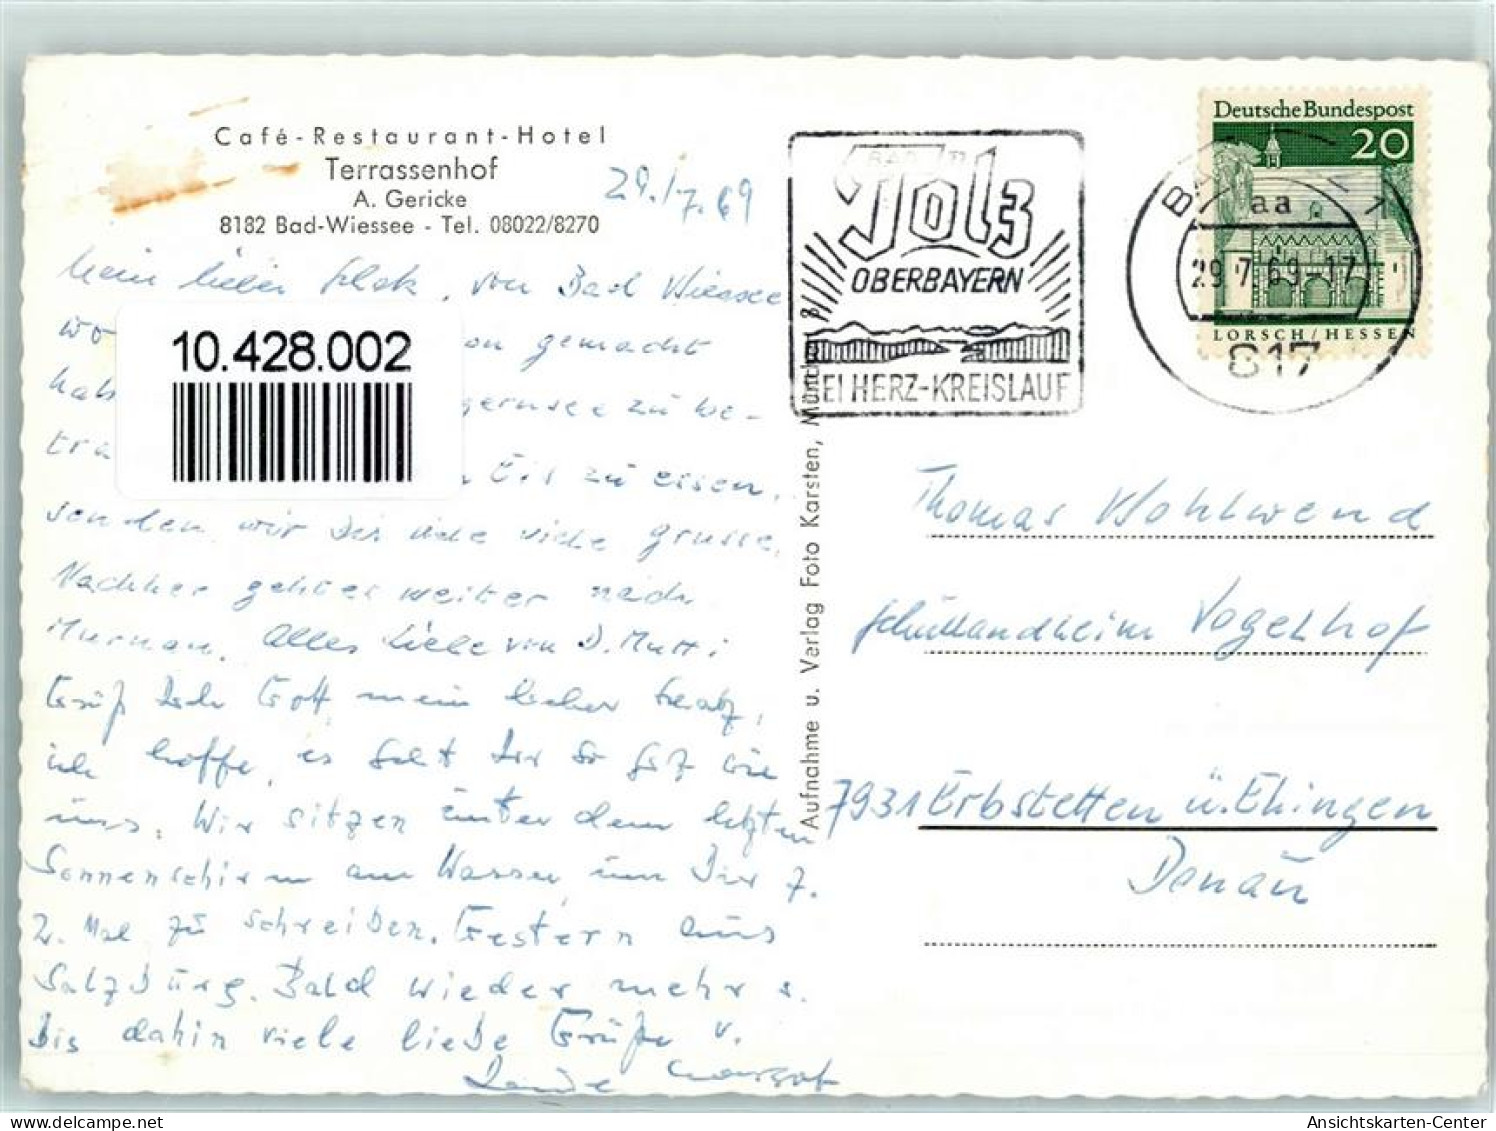 Café-Restaurant-Hotel
Terrassenhof
A. Gericke
8182 Bad-Wiessee - Tel. 08022/8270
29./7.69
Mein lieber, von Bad Wiessee
wo gemacht
hab zu be-
tra Eis zu essen,
senden wir Dir viele viele grüsse,
Nachher geht es weiter nach
Murnau. Alles Liebe von D. Mutti
Grüß Dich Gott mein lieber Schatz,
ich hoffe, es geht Dir so gut wie
uns. Wir sitzen unter dem letzten
Sonnenschirm am Wasser, um Dir z.
2. Mal zu schreiben. Gestern aus
Salzburg. Bald wieder mehr u.
bis dahin viele liebe Grüße v.
Margot
10.428.002
BAD
Tölz
OBERBAYERN
BEI HERZ-KREISLAUF
Deutsche Bundespost
20
LORSCH/HESSEN
aa
29.7.69-17
817
Aufnahme u. Verlag Foto Karsten, München 8
Thomas Wohlwend
Schullandheim Vogelhof
7931 Erbstetten ü. Ehingen
Donau
oldthing.de
Ansichtskarten-Center